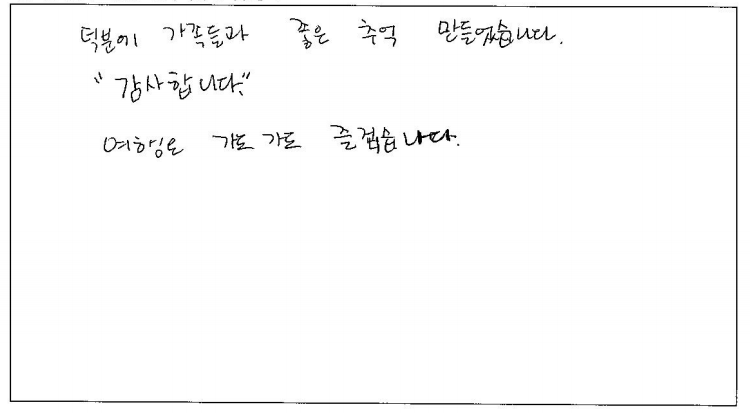 덕분에 가족들과 좋은 추억 만들었습니다.
"감사합니다."
여행은 가도 가도 즐겁습니다.